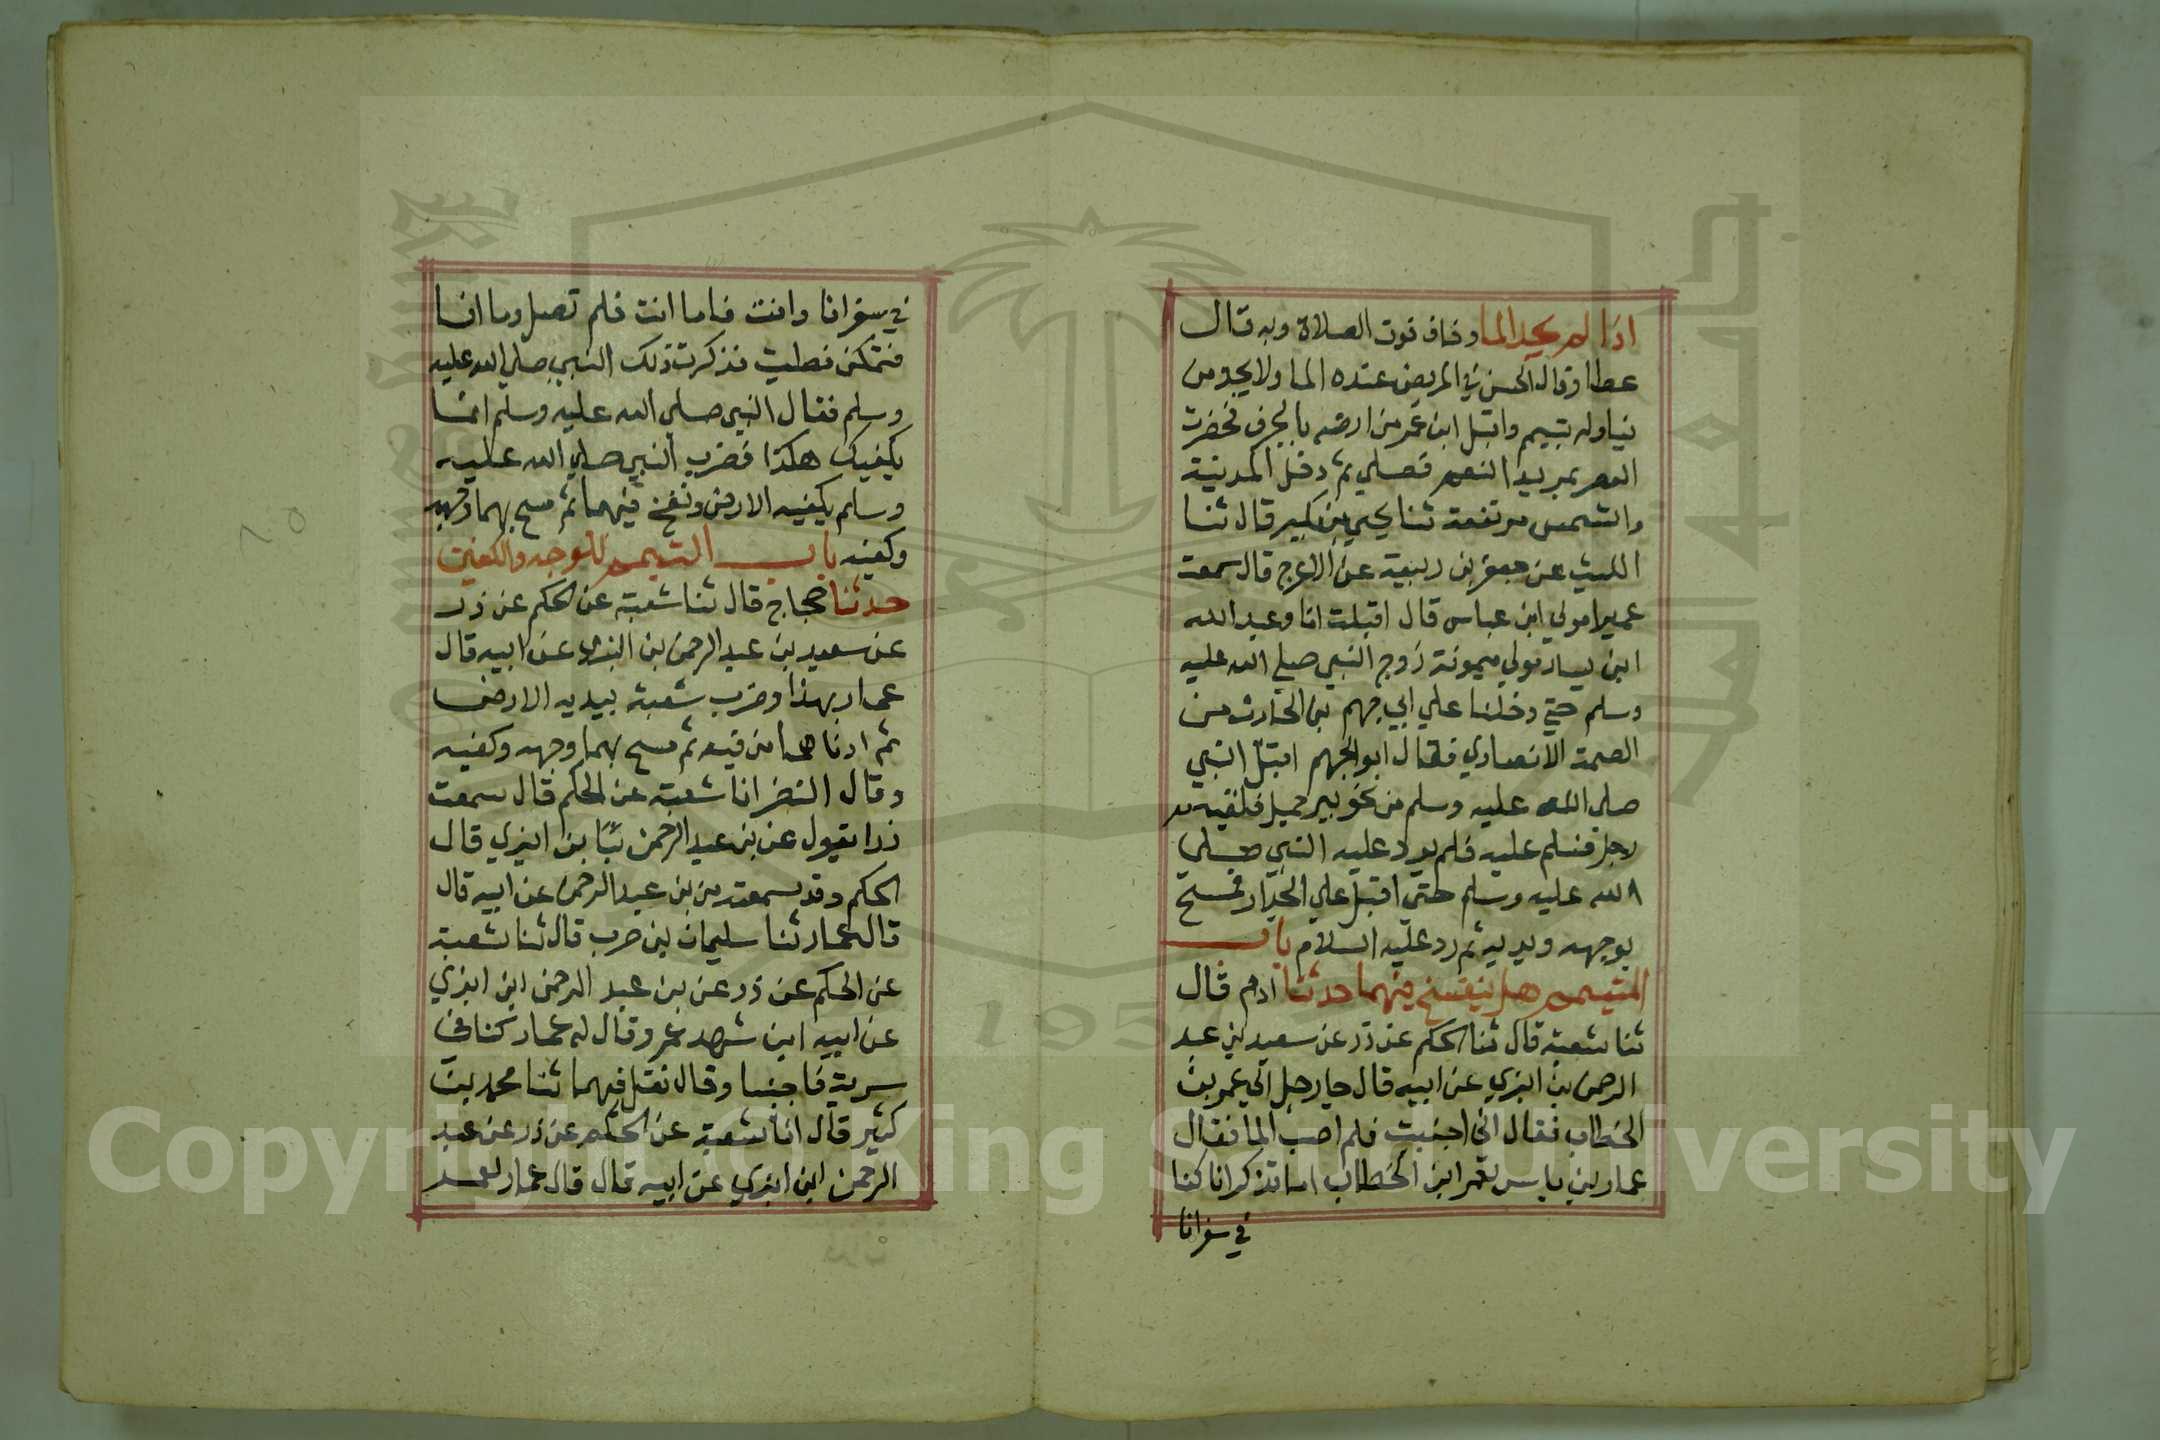 اذا لم يجد الما وخاف فوت الصلاة وبه قال
عطا وقال الحسن في المريض عنده الما ولا يجد من
يناوله يتيمم واقبل ابن عمر من ارضه بالجرف فحضرت
العصر بمربد النعم فصلي ثم دخل المدينة
والشمس مرتفعة ثنا يحيي بن بكير قال ثنا
الليث عن جعفر بن ربيعة عن الاعرج قال سمعت
عميرا مولي ابن عباس قال اقبلت انا وعبد الله
ابن يسار مولي ميمونة زوج النبي صلي الله عليه
وسلم حتي دخلنا علي ابي جهم بن الحارث من
الصمة الانصاري فقال ابو الجهم اقبل النبي
صلي الله عليه وسلم من نحو بير جميل فلقيه
رجل فسلم عليه فلم يرد عليه النبي صلي
الله عليه وسلم حتى اقبل علي الجدار فمسح
بوجهه ويديه ثم رد عليه السلام باب
المتيمم هل ينفخ فيهما حدثنا ادم قال
ثنا شعبة قال ثنا الحكم عن ذر عن سعيد بن عبد
الرحمن بن ابزي عن ابيه قال جا رجل الي عمر بن
الخطاب فقال اني اجنبت فلم اصب الما فقال
عمار بن ياسر لعمر ابن الخطاب اما تذكر انا كنا
في سفر انا
في سفر انا وانت فاما انت فلم تصل وما انا
فتمكنت فصليت فذكرت ذلك النبي صلي الله عليه
وسلم فقال النبي صلي الله عليه وسلم انما
يكفيك هكذا فضرب النبي صلي الله عليه
وسلم بكفيه الارض ونفخ فيهما ثم مسح بهما وجهه
وكفيه باب التيمم للوجه والكفين
حدثنا حجاج قال ثنا شعبة عن الحكم عن ذر
عن سعيد بن عبد الرحمن بن ابزي عن ابيه قال
عمار بهذا وضرب شعبة بيديه الارض
ثم ادناهما من فيه ثم مسح بهما وجهه وكفيه
وقال النضر انا شعبة عن الحكم قال سمعت
ذرا يقول عن بن عبد الرحمن بن ابزي قال
الحكم وقد سمعته من بن عبد الرحمن عن ابيه قال
قال عمار ثنا سليمان بن حرب قال ثنا شعبة
عن الحكم عن ذر عن بن عبد الرحمن ابن ابزي
عن ابيه ابن شهد عمر وقال له عمار كنا في
سرية فاجنبنا وقال تفل فيهما ثنا محمد بن
كثير قال انا شعبة عن الحكم عن ذر عن عبد
الرحمن ابن ابزي عن ابيه قال قال عمار لعمر
Copyright © King Saud University
1957